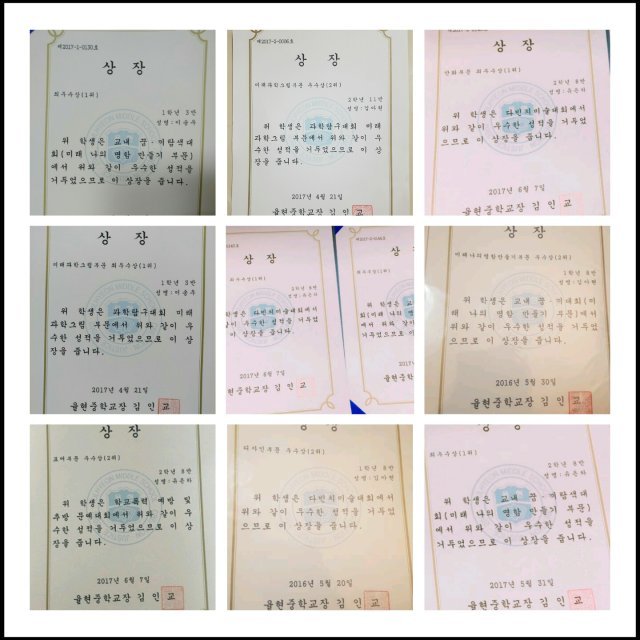 제2017-1-0130호
상 장
최우수상(1위)
1학년 3반
성명:이송주
위 학생은 교내 꿈·끼탐색대
회(미래 나의 명함 만들기 부문)
에서 위와 같이 우수한 성적을
거두었으므로 이 상장을 줍니다.
상 장
미래과학그림부문 우수상(2위)
2학년 11반
위 학생은 과학탐구대회 미래
과학그림 부문에서 위와 같이 우
수한 성적을 거두었으므로 이 상
장을 줍니다.
2017년 4월 21일
율현중학교장 김 인 교
상 장
만화부문 최우수상(1위)
2학년 8반
성명:유은차
위 학생은 다빈치미술대회에서
위와 같이 우수한 성적을 거두었
으므로 이 상장을 줍니다.
2017년 6월 7일
율현중학교장 김 인 교
상 장
미래과학그림부문 최우수상(1위)
1학년 3반
성명:이송주
위 학생은 과학탐구대회 미래
과학그림 부문에서 위와 같이 우
수한 성적을 거두었으므로 이 상
장을 줍니다.
2017년 4월 21일
율현중학교장 김 인 교
상 장
최우수상(1위)
2학년 8반
성명:유은차
위 학생은 다빈치미술대회에서
위와 같이 우수한 성적을 거두었
으므로 이 상장을 줍니다.
2017년 6월 7일
율현중학교장 김 인 교
상
우수상(2위)
위 학생은 교내
회(미래 나의 명함
에서 위와 같이
거두었으므로 이
2017년
율현중학교장
미래나의명함만들기부문 우수상(2위)
1학년 8반
위 학생은 교내 꿈·끼대회(미
래 나의 명함 만들기 부문)에서
위와 같이 우수한 성적을 거두었
으므로 이 상장을 줍니다.
2016년 5월 30일
율현중학교장 김 인 교
상 장
표어부문 우수상(2위)
2학년 8반
성명:유은차
위 학생은 학교폭력 예방 및
추방 문예대회에서 위와 같이 우
수한 성적을 거두었으므로 이 상
장을 줍니다.
2017년 6월 7일
율현중학교장 김 인 교
디자인부문 우수상(2위)
1학년 8반
위 학생은 다빈치미술대회에서
위와 같이 우수한 성적을 거두었
으므로 이 상장을 줍니다.
2016년 5월 20일
율현중학교장 김 인 교
상 장
우수상(2위)
2학년 8반
성명:유은차
위 학생은 교내 꿈·끼탐색대
회(미래 나의 명함 만들기 부문)
에서 위와 같이 우수한 성적을
거두었으므로 이 상장을 줍니다.
2017년 5월 31일
율현중학교장 김 인 교